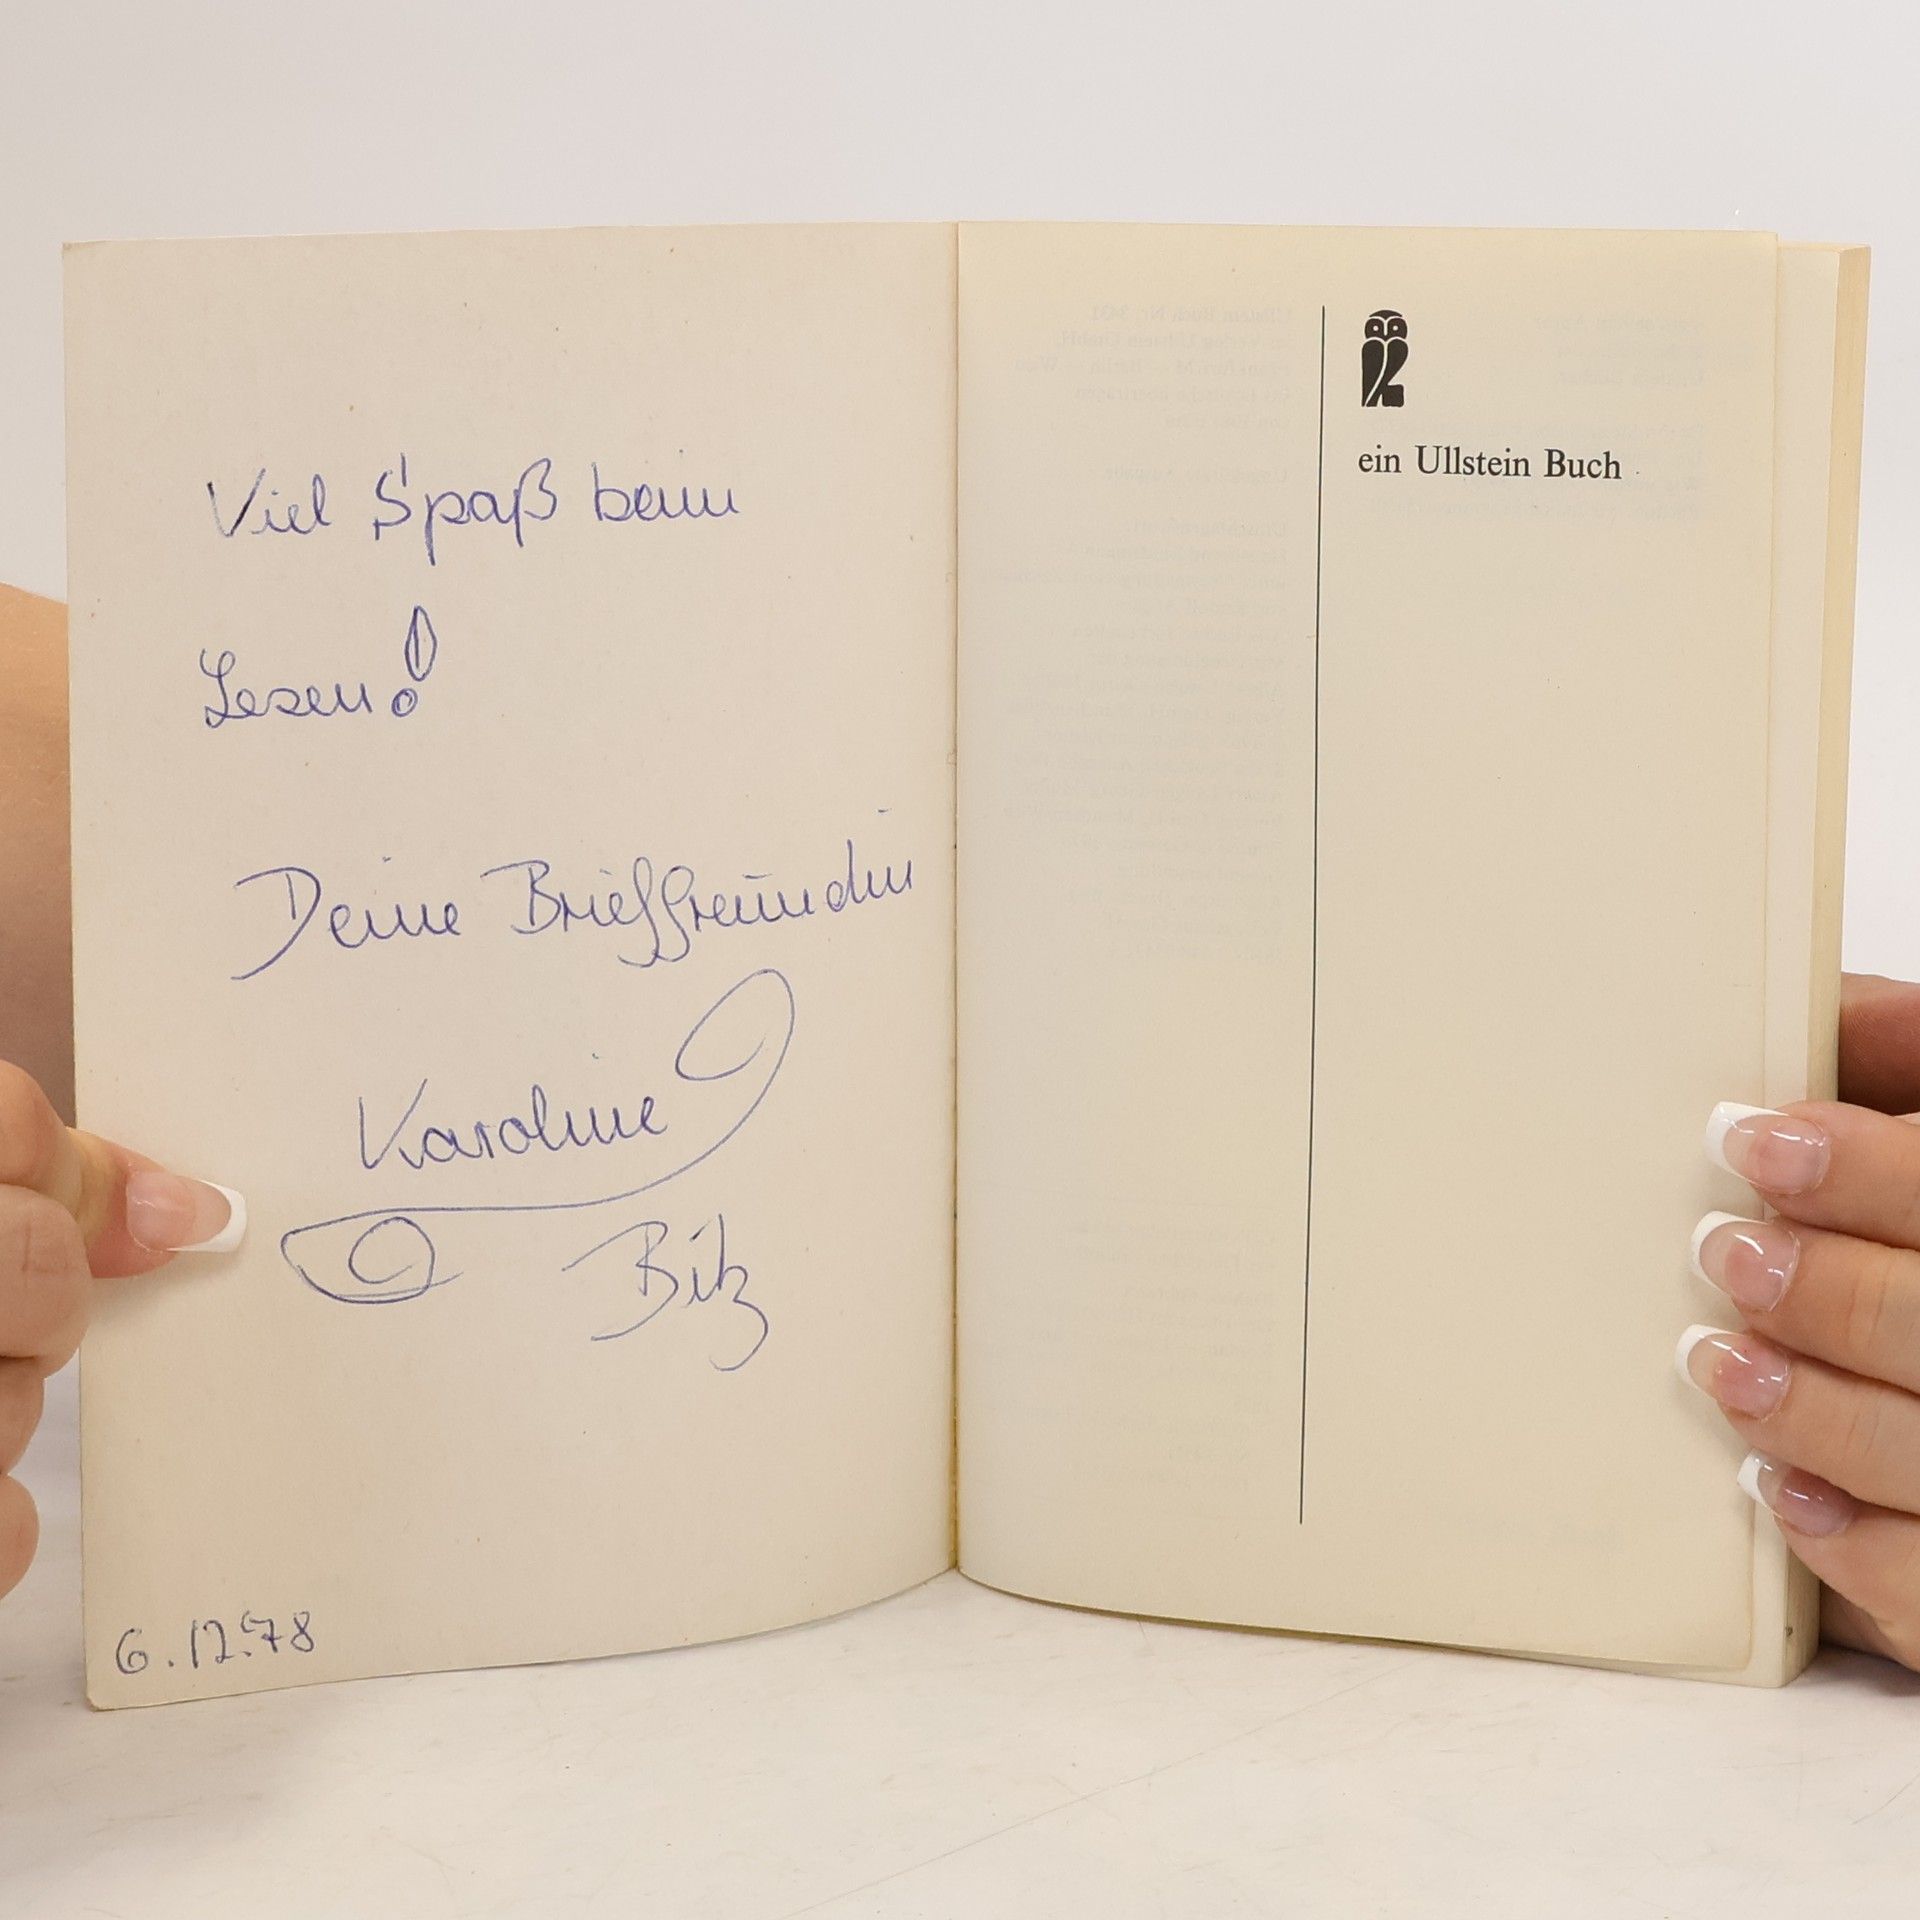 Viel Spaß beim
Lesen!
Deine Brieffreundin
Karoline
Bitz
6.12.78
ein Ullstein Buch